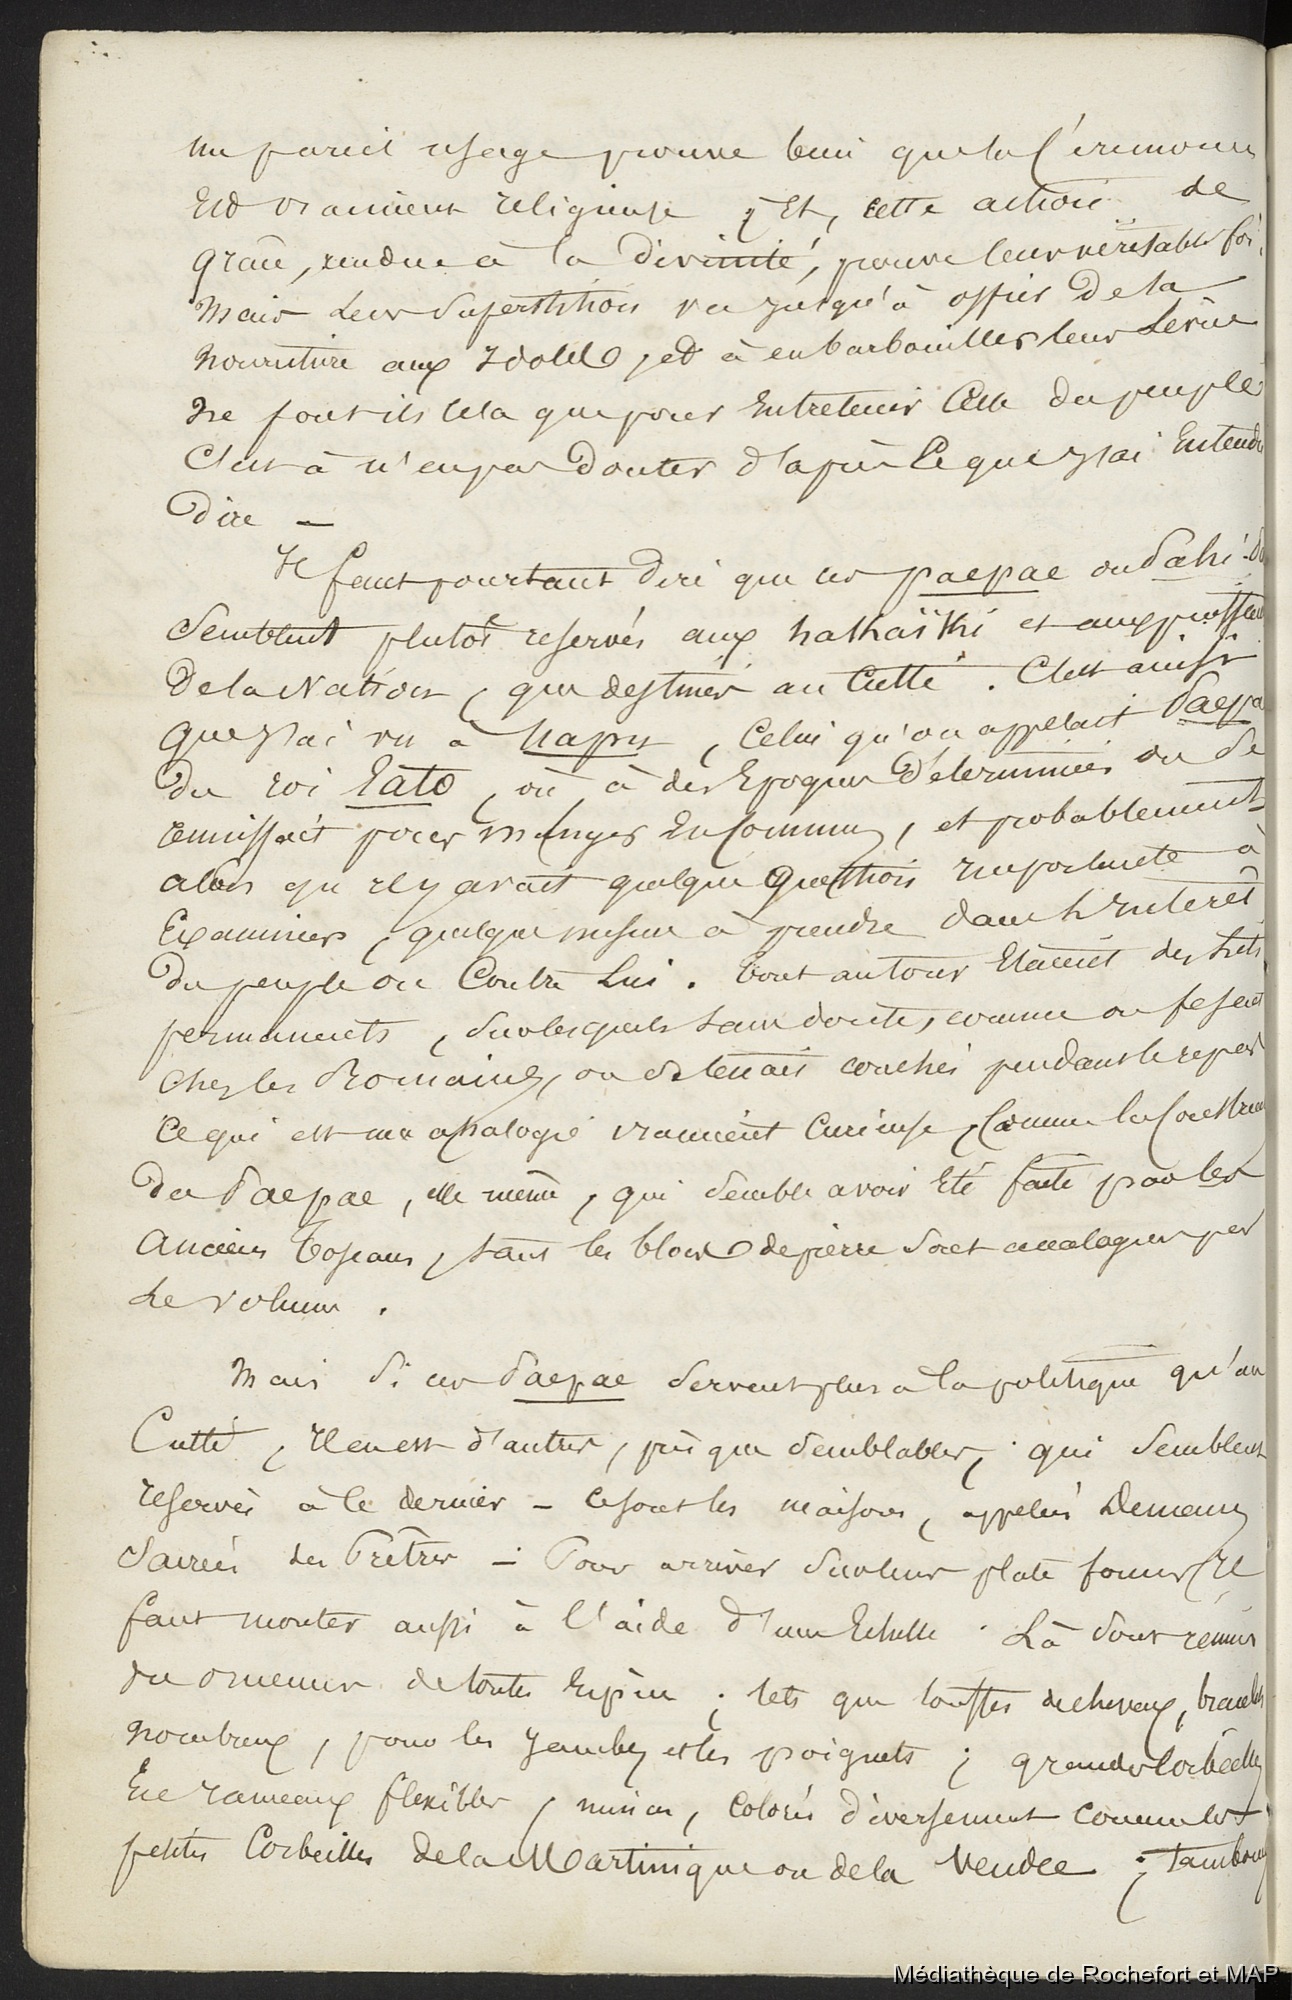 un pareil usage prouve bien que la Cérémonie
Est vraiment religieuse ; Et, cette action de
grâce, rendue à la divinité, prouve leur véritable foi.
Mais leur Superstition va jusqu'à offrir de la
Nourriture aux Idoles, et à en barbouiller leur Lèvre
Ne font ils cela que pour Entretenir Celle du peuple
C'est à n'en pas Douter d'après Ce que J'ai Entendu
dire —
Il faut pourtant dire que ces paepae ou Sahi
Semblent plutôt reservés aux hakhaïki et aux
De la Nation, que destinés au Culte. C'est ainsi
que J'ai vu à hapu, Celui qu'on appelait Paepae
du roi Iato, où, à des Epoques Déterminées on se
réunissait pour manger En Commun, et probablement
alors qu'il y avait quelque Question importante à
Examiner, quelque mesure à prendre dans l'Interet
Du peuple ou Contre Lui. tout autour Etaient des lits
permanents, Sur lesquels sans doute, comme on fesait
Chez les Romains, on se tenait couchés pendant le repas
Ce qui est une analogie vraiment Curieuse, Comme la Construction
du Paepae, elle même, qui semble avoir Eté faite par les
Anciens Toscans, tant les blocs de pierre sont analogues par
Le volume.
Mais Si ces Paepae Servent plus à la politique qu'au
Culte, Il en est d'autres, presque Semblables, qui Semblent
reservés à ce dernier — ce sont les maisons, appelées Demeures
Sacrées des Prêtres — Pour arriver Sur leur plate forme, Il
faut monter aussi à l'aide d'une Echelle. Là Sont réunis
des ornemens de toutes Espèces ; tels que touffes de cheveux, bracelets
Nombreux, pour les Jambes et les poignets ; grandes Corbeilles
En rameaux flexibles, minces, colorés diversement comme les
petites Corbeilles de la Martinique ou de la Vendée ; tambours
Médiathèque de Rochefort et MAP